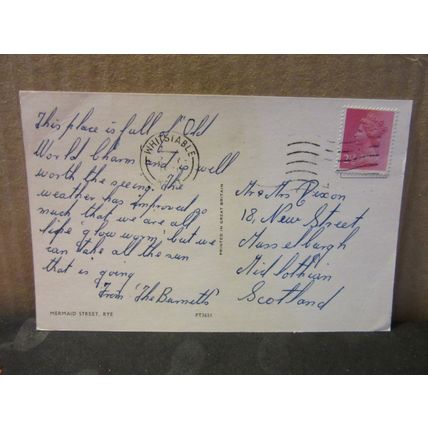 This place is full of "Old
World Charm" and is well
worth the seeing. The
weather has improved so
much that we are all
like 'glow worms' but we
can take all the sun
that is going
From 'The Barnetts'
WHITSTABLE
PRINTED IN GREAT BRITAIN
Mr & Mrs Dixon
18, New Street
Musselburgh
Midlothian
Scotland
MERMAID STREET, RYE
PT3651